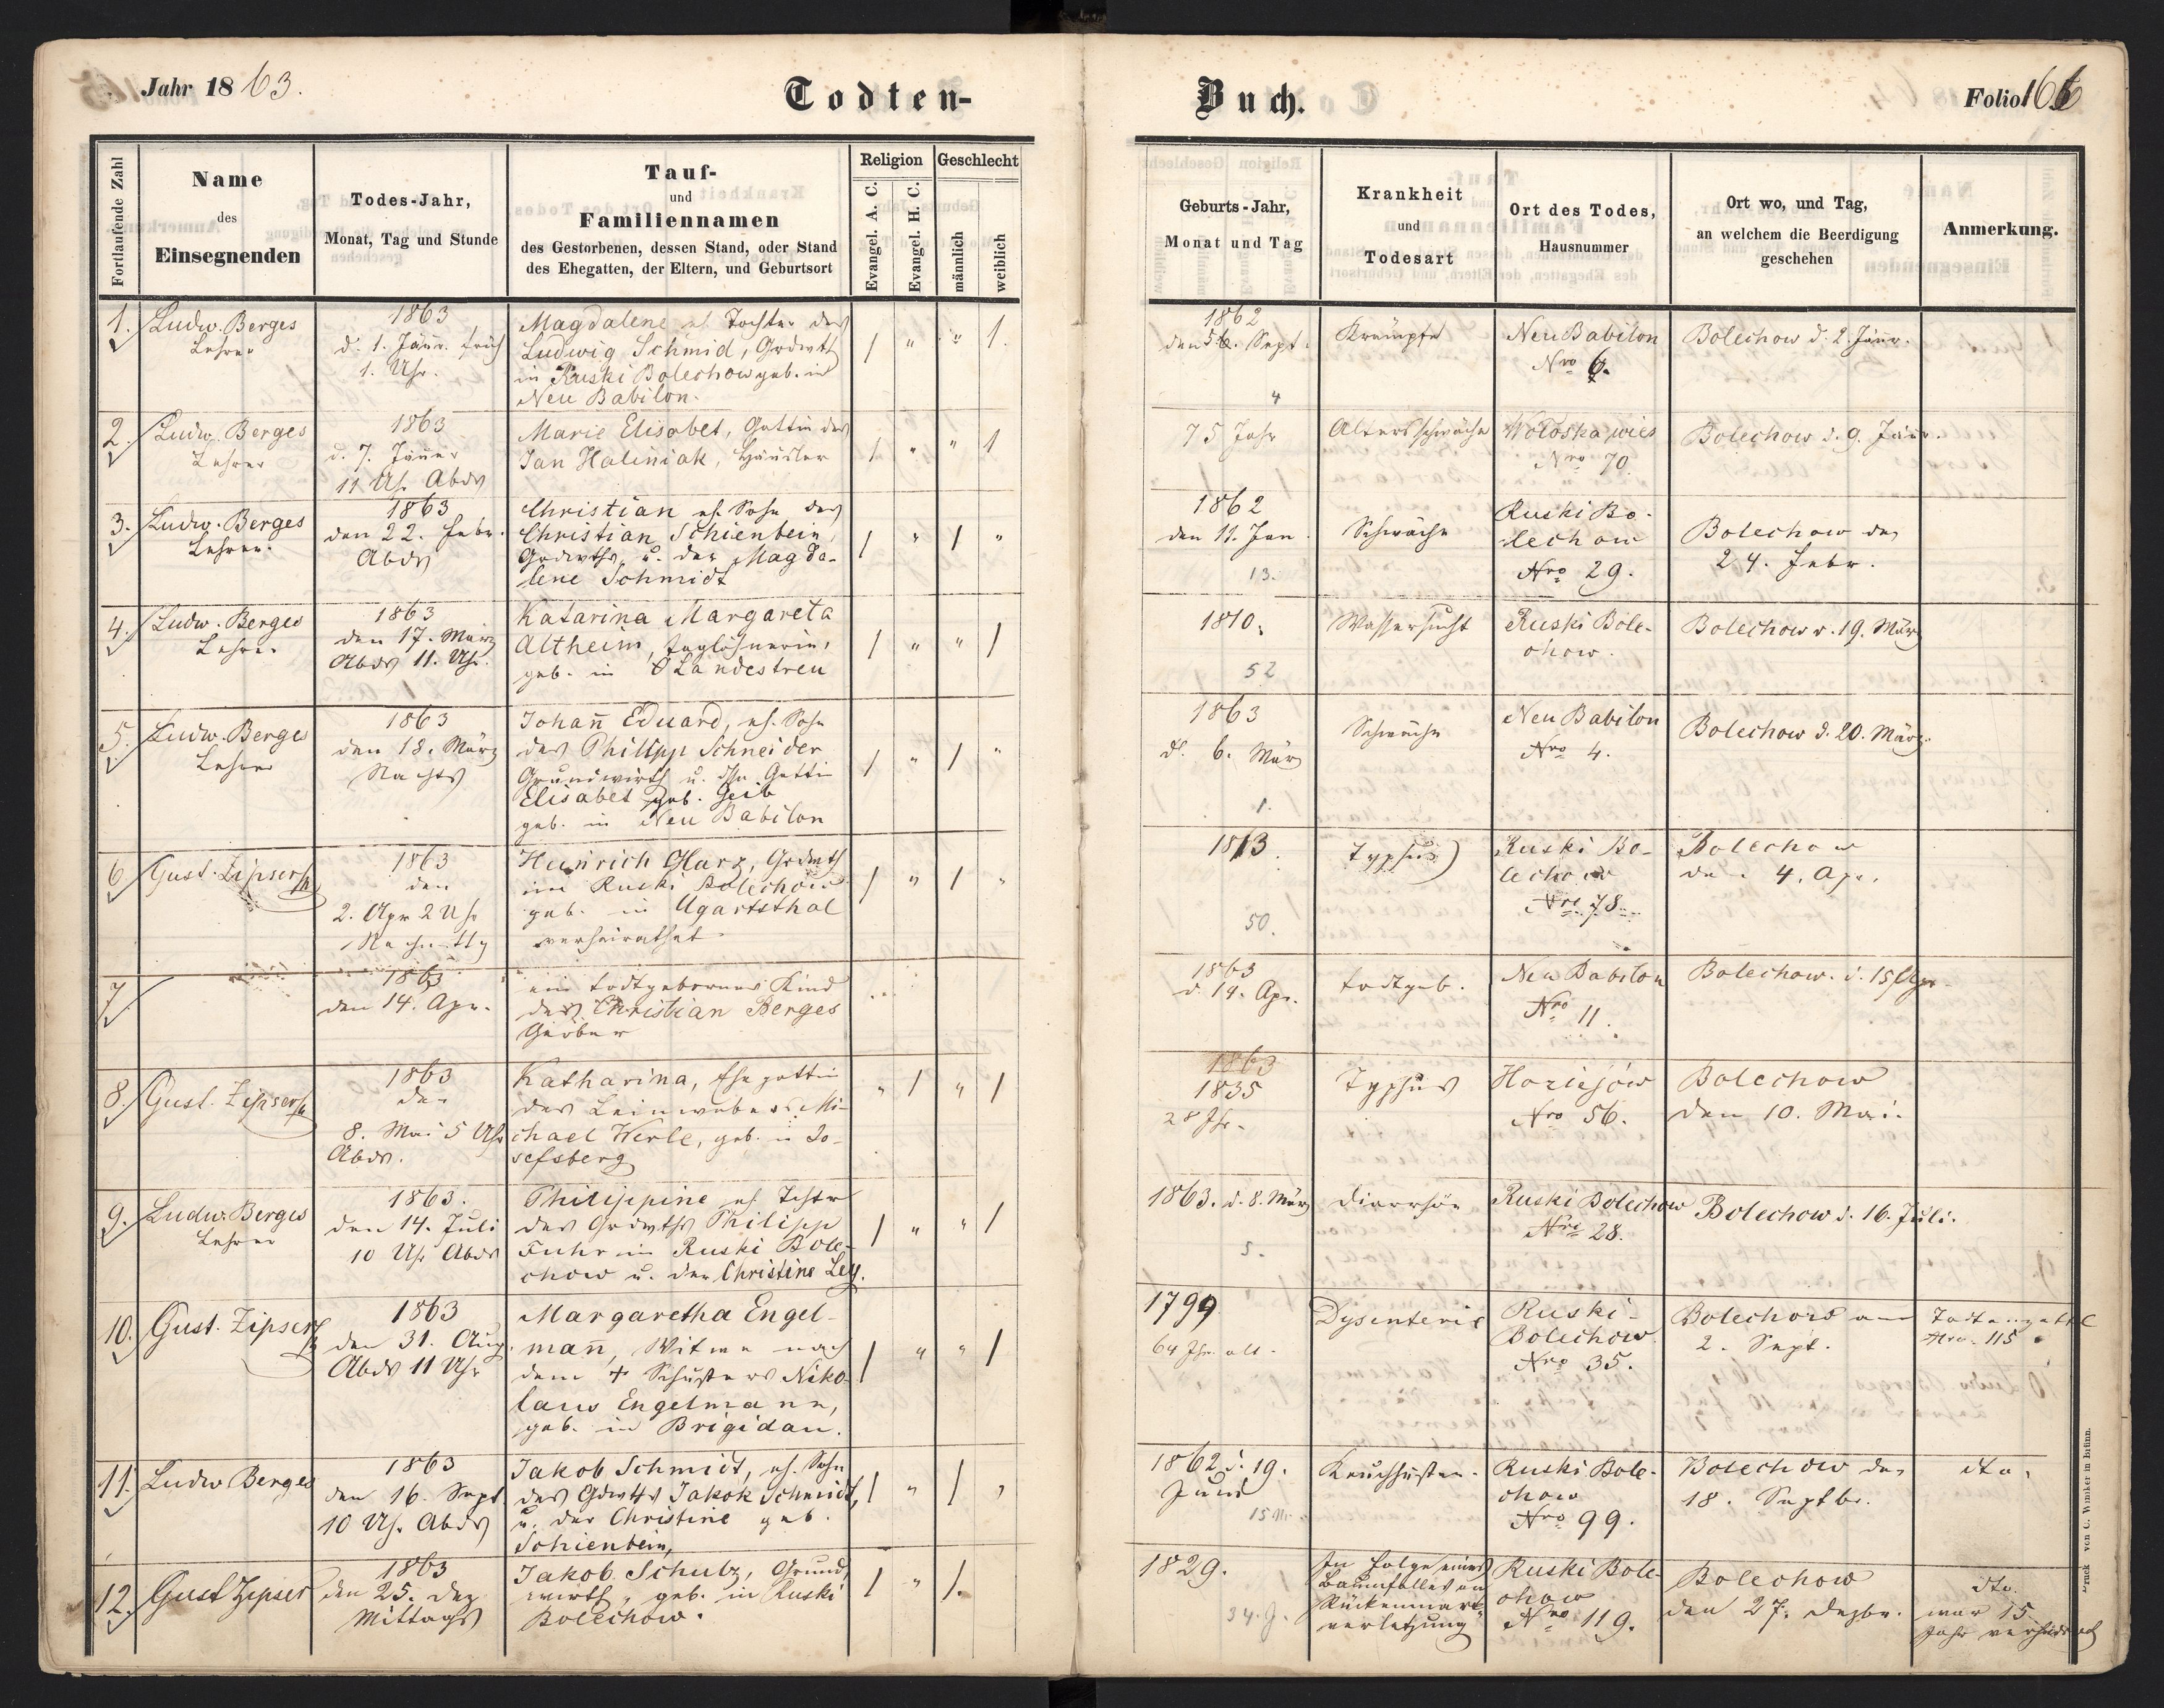 Jahr 1863.
Todten-
Buch.
Folio 166
Fortlaufende Zahl
Name
des
Einsegnenden
Todes-Jahr,
Monat, Tag und Stunde
Tauf-
und
Familiennamen
des Gestorbenen, dessen Stand, oder Stand
des Ehegatten, der Eltern, und Geburtsort
Religion
Evangel. A. C.
Evangel. H. C.
Geschlecht
männlich
weiblich
Geburts-Jahr,
Monat und Tag
Krankheit
und
Todesart
Ort des Todes,
Hausnummer
Ort wo, und Tag,
an welchem die Beerdigung
geschehen
Anmerkung.
1.
Ludw. Berges
Lehrer
1863
d. 1. Jänr. früh
1. Uhr.
Magdalene eh. Tochter des
Ludwig Schmid, Grdwth
in Ruski Bolechow geb. in
Neu Babilon.
1 " " 1.
1862
den Sept.
4
Krämpfe
Neu Babilon
Nro 6.
Bolechow d. 2. Jänr.
2.
Ludw. Berges
Lehrer
1863
d. 7. Jäner
11 Uh. Abds
Marie Elisabet, Gattin des
Jan Haliniak, Häusler
1 " " 1
75 Jahr
Altersschwäche
Woloska wies
Nro 70.
Bolechow d. 9. Jänr.
3.
Ludw. Berges
Lehrer.
1863
den 22. Febr.
Abds
Christian eh. Sohn des
Christian Schienbein,
Grdwths u. der Magda-
lene Schmidt
1 " 1 "
1862
den 11. Jan.
13.
Schwäche
Ruski Bo-
lechow
Nro 29.
Bolechow den
24. Febr.
4.
Ludw. Berges
Lehrer
1863
den 17. März
Abds 11. Uhr.
Katarina Margareta
Altheim, taglöhnerin,
geb. in Landestreu
1 " " 1
1810.
52
Wassersucht
Ruski Bole-
chow.
Bolechow d. 19. März
5.
Ludw. Berges
Lehrer
1863
den 18. März
Nachts
Johañ Eduard, eh. Sohn
des Philipp Schneider
Grundwirth u. dssn Gattin
Elisabet geb. Geib
geb. in Neu Babilon
1 " 1 "
1863
d. 6. März
1.
Schwäche
Neu Babilon
Nro 4.
Bolechow d. 20. März
6
Gust. Zipser
1863
den
2. Apr 2 Uhr
Nachmttg
Heinrich Harz, Grdwth
in Ruski Bolechow
geb. in Ugartsthal
verheirathet
1 " 1 "
1813.
50.
Typhus
Ruski Bo-
lechow
Nro 78.
Bolechow
den 4. Apr.
7
1863
den 14. Apr.
ein todtgebornes Kind
des Christian Berges
Gärber
1863
d. 14. Apr.
todtgeb.
Neu Babilon
Nro 11.
Bolechow. d. 15 Apr.
8.
Gust. Zipser
1863
den
8. Mai 5 Uhr
Abds.
Katharina, Ehegattin
des Leinwebers Mi-
chael Werle, geb. in Jo-
sefsberg
" 1 " 1
1863
1835
28 Jhr.
Typhus
Hoziejow
Nro 56.
Bolechow
den 10. Mai.
9.
Ludw. Berges
Lehrer
1863.
den 14. Juli
10 Uhr Abds
Philippine eh. Tchtr
des Grdwths Philipp
Fuhr in Ruski Bole-
chow u. der Christine Ley.
1 " " 1
1863. d. 8. März
5.
Diarrhöe
Ruski Bolechow
Nro 28.
Bolechow d. 16. Juli.
10.
Gust. Zipser
1863
den 31. Aug.
Abds 11 Uhr
Margaretha Engel-
mañ, Witwe nach
dem + Schusters Niko-
laus Engelmann,
geb. in Brigidau.
1 " " 1
1799
64 Jhr. alt.
Dysenterie
Ruski-
Bolechow
Nro 35.
Bolechow am
2. Sept.
Todtenzettel
Nro. 115
11.
Ludw Berges
1863
den 16. Sept
10 Uh. Abds
Jakob Schmidt, eh. Sohn
des Gdwths Jakok Schmidt,
u. der Christine geb.
Schienbein,
1 " 1 "
1862 d. 19.
Juni
15 M.
Keuchhusten.
Ruski Bole-
chow
Nro 99.
Bolechow den
18. Septbr.
dto.
12.
Gust Zipser
1863
den 25. Dez
Mittags
Jakob Schulz, Grund
wirth, geb. in Ruski
Bolechow.
1 " 1.
1829.
34. J.
In Folge eines
Baumfalles an
Rückenmark
verletzung
Ruski Bole-
chow
Nro 119.
Bolechow
den 27. Dezbr.
dto.
war 15
Jahr verheirath
Druck von C. Winiker in Brünn.